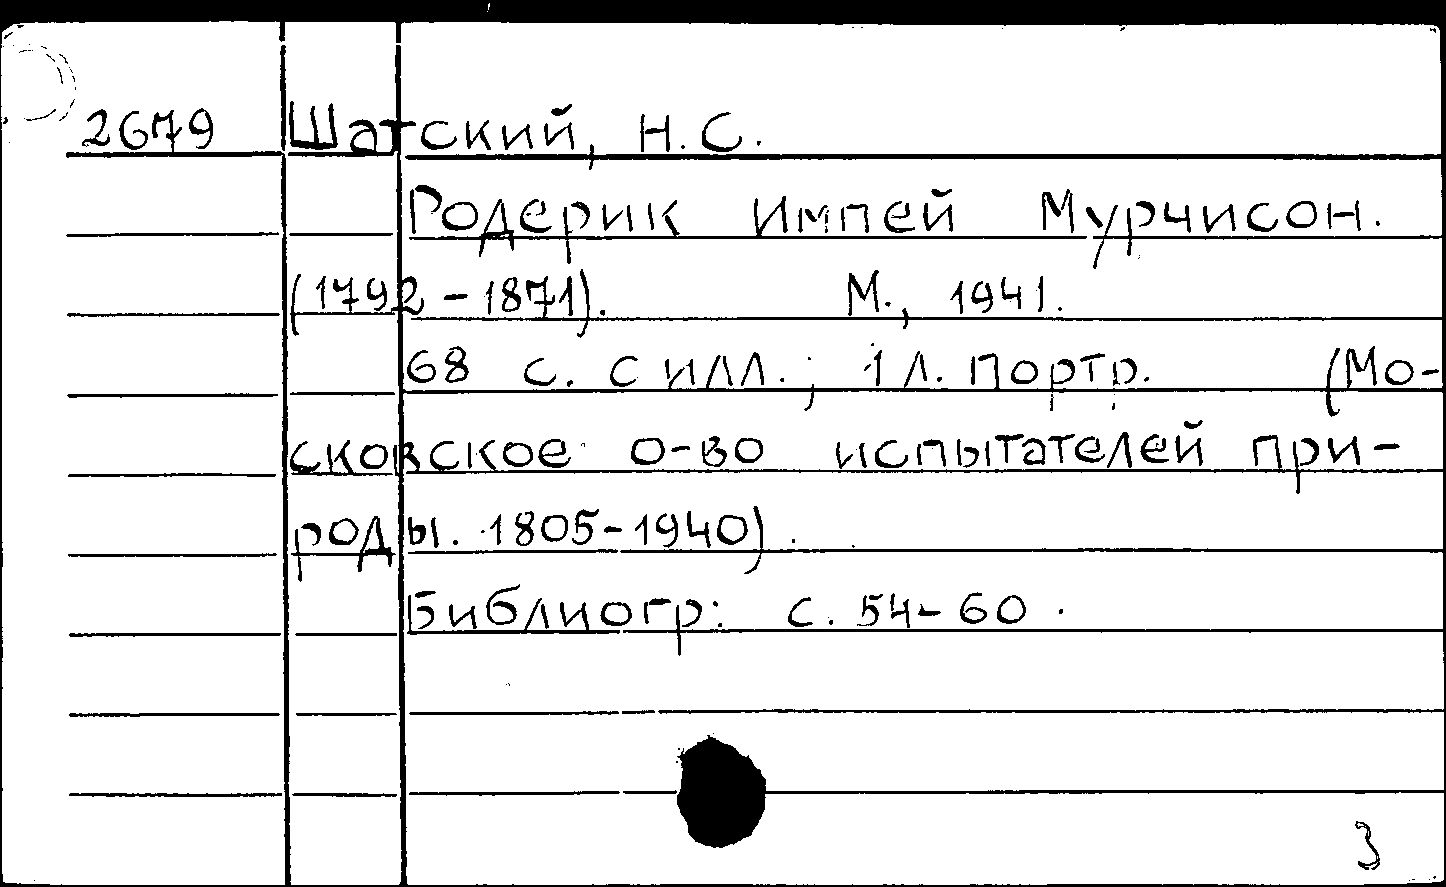 2679 Шатский, Н.С.
Родерик Импей Мурчисон.
(1792-1871). М., 1941.
68 с. с илл.; 1 л. портр. (Мо-
сковское о-во испытателей при-
роды. 1805-1940).
Библиогр: с. 54-60.
3